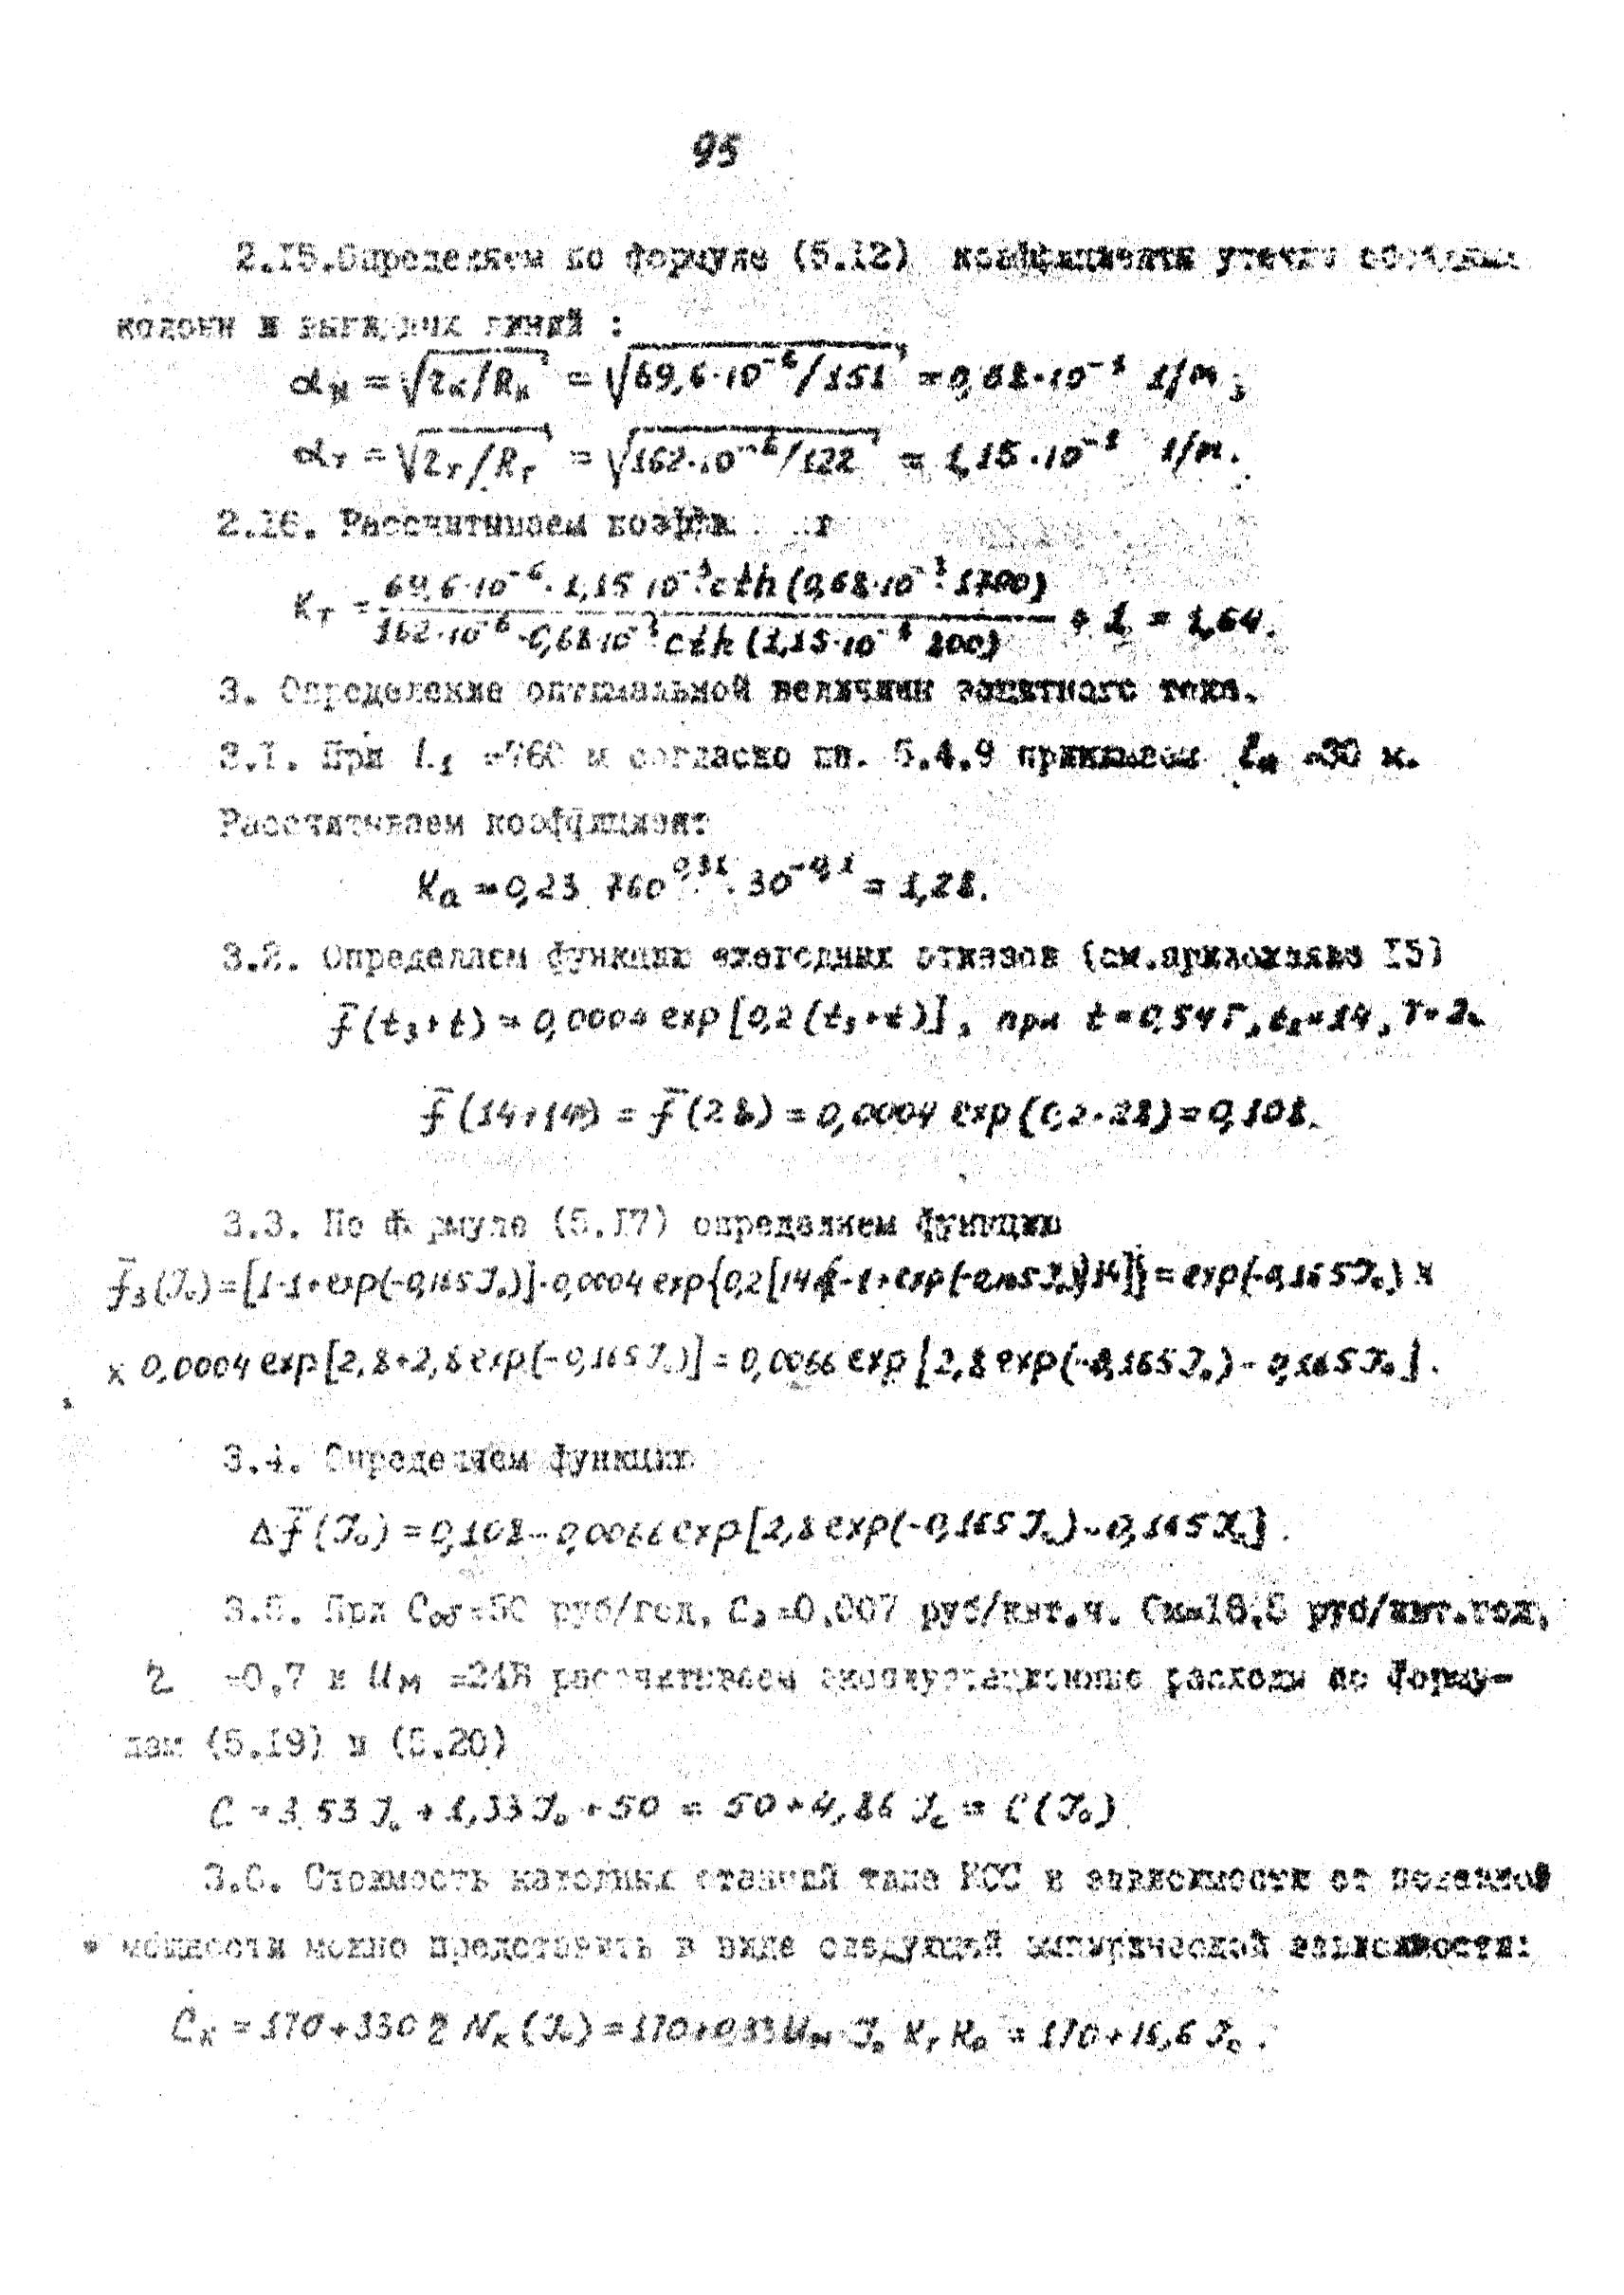 95
2.15.Определяем по формуле (5.12) коэффициенты утечки обсадных
колонн и выкидных линий :
αк = √(rк/Rк) = √(69,6·10⁻⁶/151) = 0,68·10⁻³ 1/м ;
αт = √(rт/Rт) = √(162·10⁻⁶/122) = 1,15·10⁻³ 1/м.
2.16. Рассчитываем коэфф
Кт = (69,6·10⁻⁶·1,15 10⁻³·cth(0,68·10⁻³·1700))/(162·10⁻⁶·0,68·10⁻³·cth(1,15·10⁻³ 200)) + 1 = 1,64.
3. Определение оптимальной величины защитного тока.
3.1. При L₁ =760 м согласно пп. 5.4.9 принимаем lа =30 м.
Рассчитываем коэффициент
Ка = 0,23 760^0,31·30^-0,1 = 1,28.
3.2. Определяем функцию ежегодных отказов (см.приложение 15)
f̄(t₃+t) = 0,0004 exp[0,2(t₃+t)], при t=0,54Г, t₃=14, T=
f̄(14+14) = f̄(28) = 0,0004 exp(0,2·28)=0,108.
3.3. По формуле (5.17) определяем функцию
f̄₃(J₀)=[1-1+exp(-0,165J₀)]·0,0004 exp{0,2[14+(1-1+exp(-0,165J₀))14]}=exp(-0,165J₀) x
x 0,0004 exp[2,8+2,8 exp(-0,165J₀)] = 0,0066 exp[2,8 exp(-0,165J₀) - 0,165J₀].
3.4. Определяем функцию
Δf̄(J₀) = 0,108-0,0066 exp[2,8 exp(-0,165J₀)-0,165J₀].
3.5. При Соб=50 руб/год, Сэ=0,007 руб/квт.ч. См=18,5 руб/квт.год,
η =0,7 и Uм =24В рассчитываем эксплуатационные расходы по форму-
лам (5.19) и (5.20)
C = 3 53 J₀ + 1,33 J₀ + 50 = 50 + 4,86 J₀ = C(J₀)
3.6. Стоимость катодных станций типа КСС в зависимости от полезной
мощности можно представить в виде следующей эмпирической зависимости:
Cк = 170+330 η Nк(J₀) = 170+0,33 Uм J₀ Кт Ка = 170+16,6 J₀.